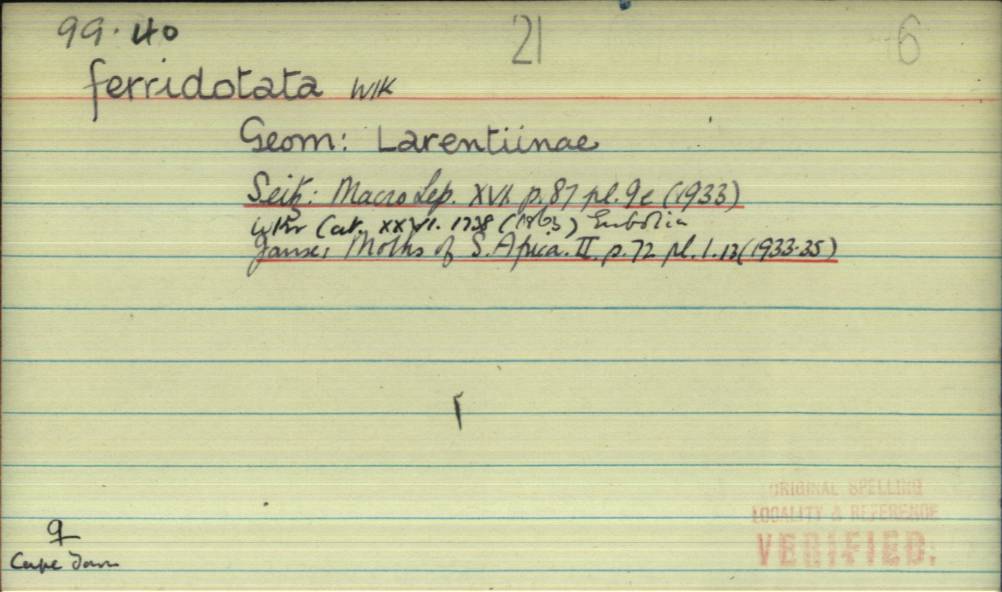 99.40
21
6
ferridotata Wlk
Geom: Larentiinae
Seitz: Macro Lep. XVI. p.87 pl.9e (1933)
Wlkr Cat. XXVI. 1738 (1863) Eubolia
Janse, Moths of S. Africa. II. p.72 pl.1.13 (1933-35)
ORIGINAL SPELLING
LOCALITY & REFERENCE
VERIFIED.
♀
Cape Town